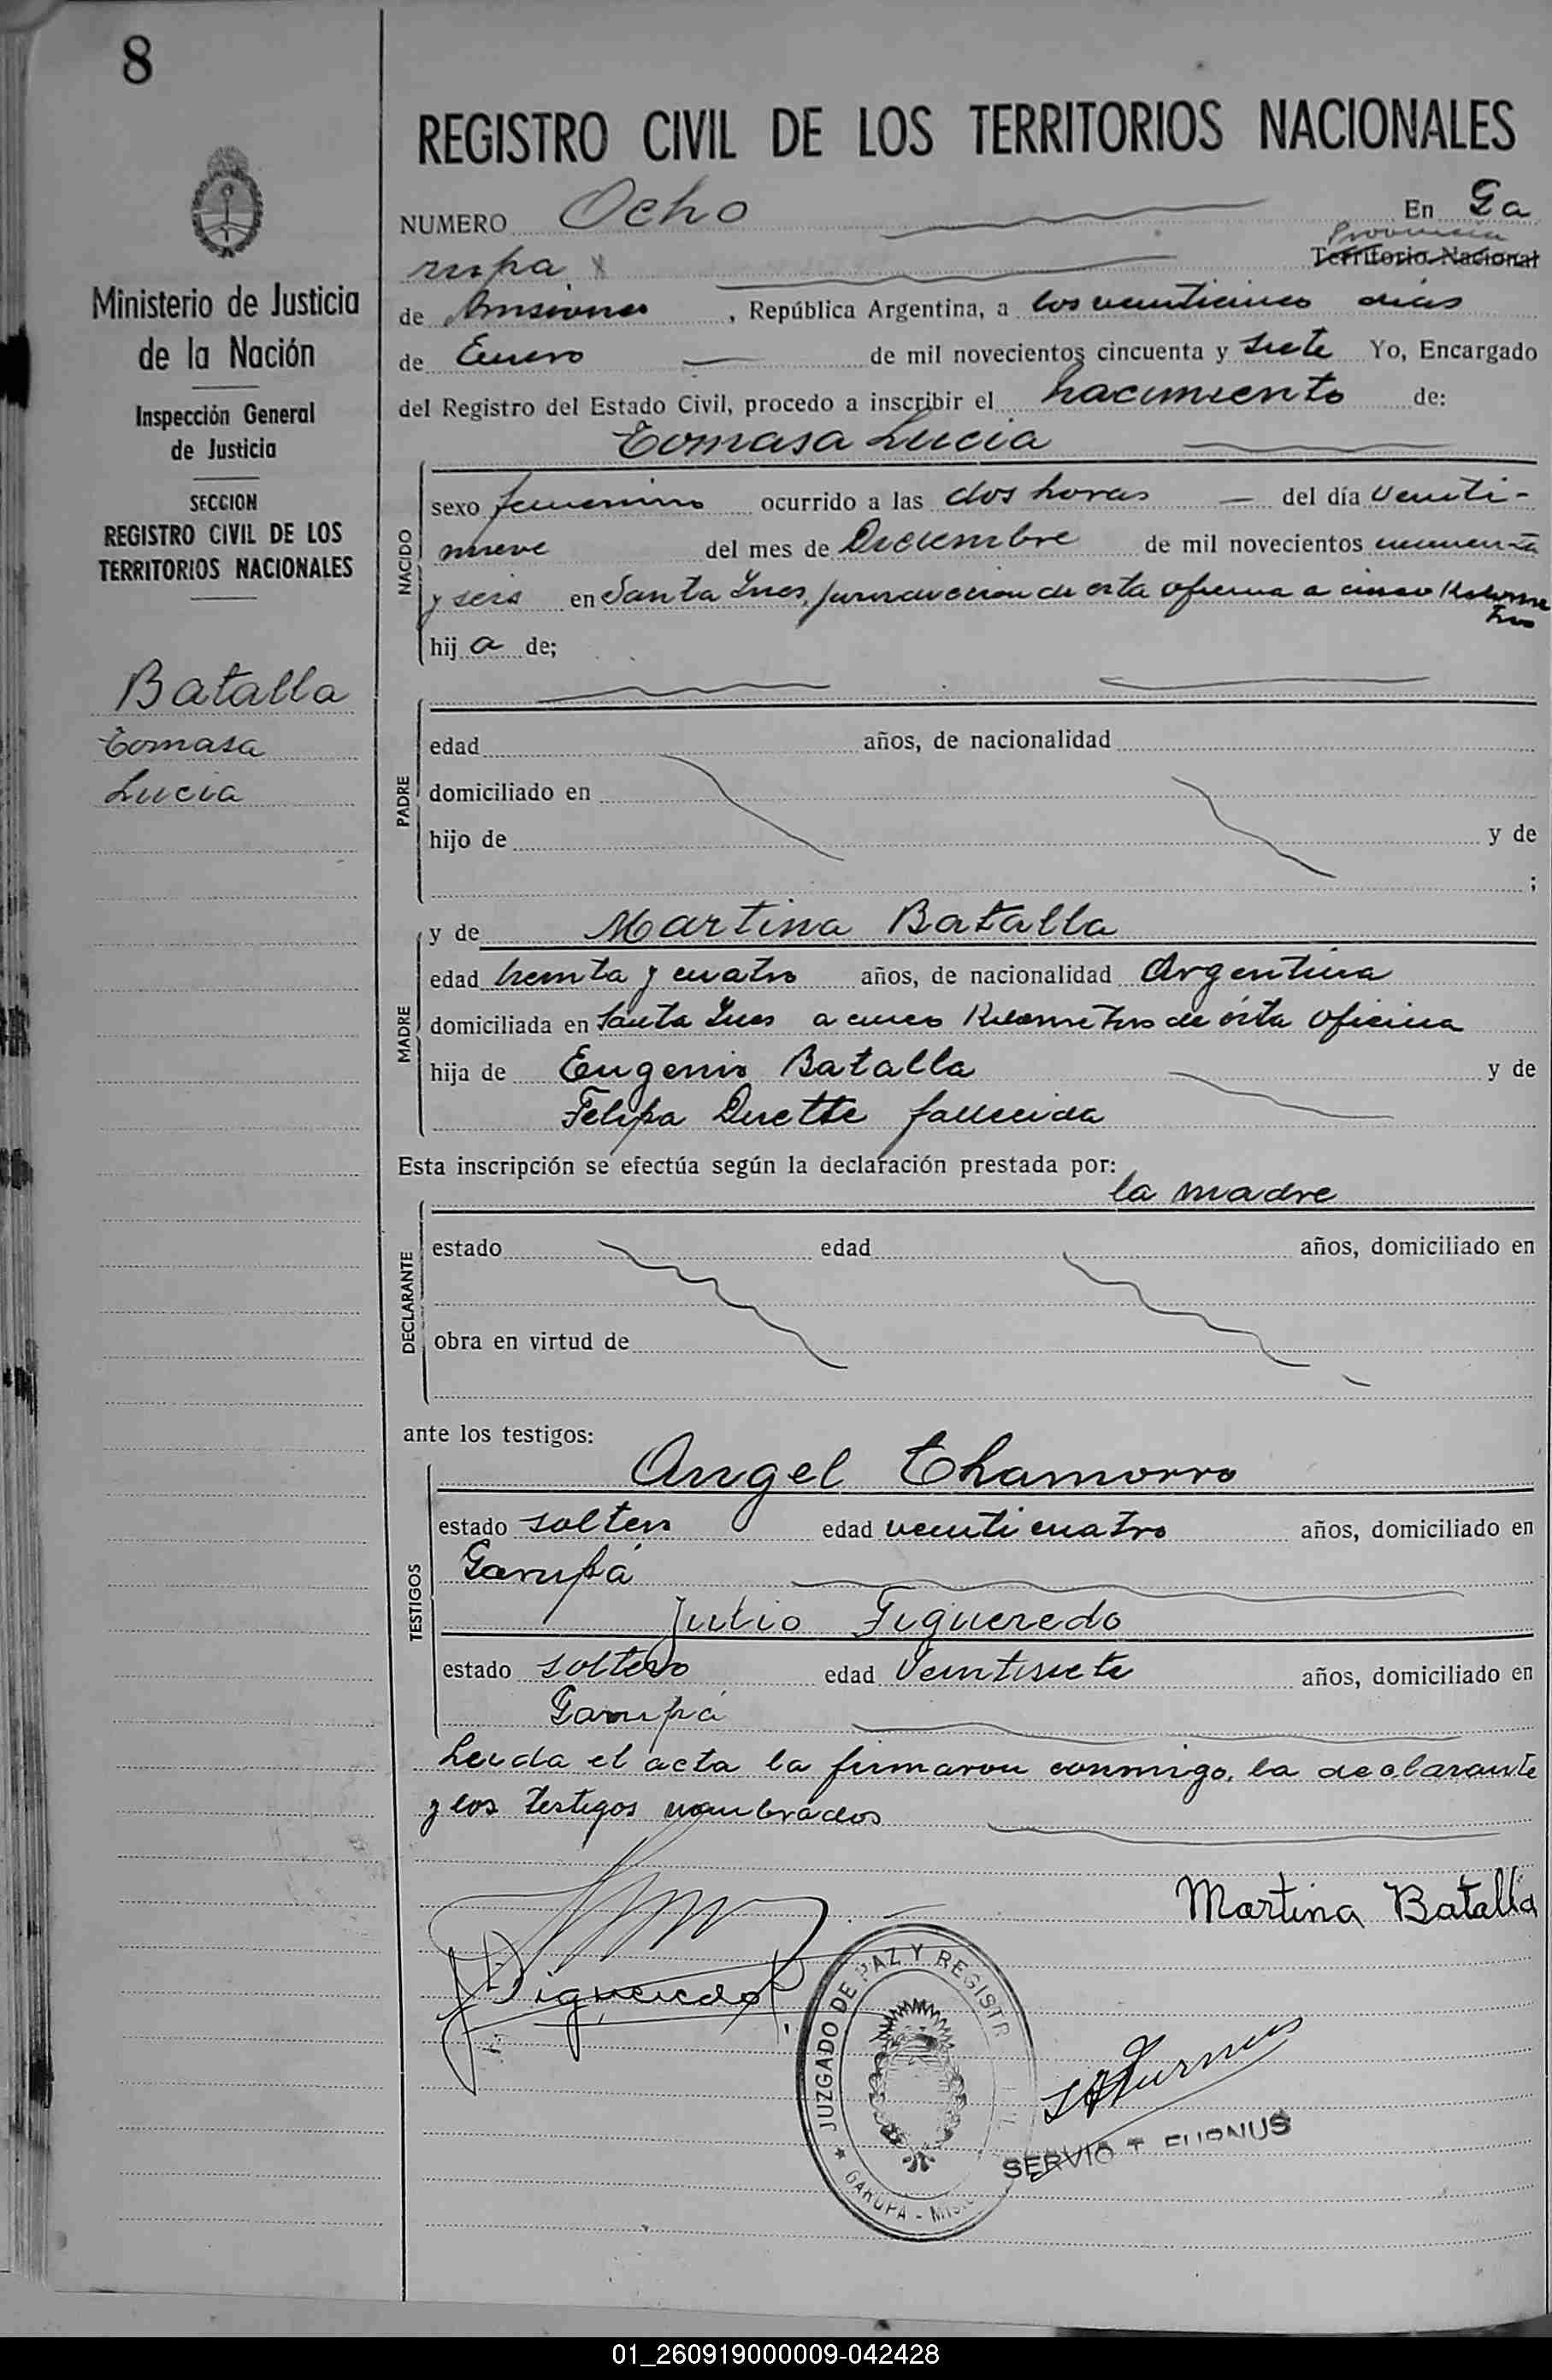 8
REGISTRO CIVIL DE LOS TERRITORIOS NACIONALES
NUMERO Ocho En Ga
rupa Provincia Territorio Nacional
de Misiones, República Argentina, a los veinticinco dias
de Enero de mil novecientos cincuenta y siete Yo, Encargado
del Registro del Estado Civil, procedo a inscribir el nacimiento de:
Tomasa Lucia
NACIDO
sexo femenino ocurrido a las dos horas del día veinti-
nueve del mes de Diciembre de mil novecientos cincuenta
y seis en Santa Ines, jurisdiccion de esta oficina a cinco Kilome
tros
hij a de;
PADRE
edad años, de nacionalidad
domiciliado en
hijo de y de
;
MADRE
y de Martina Batalla
edad treinta y cuatro años, de nacionalidad Argentina
domiciliada en Santa Ines a cinco Kilometros de esta oficina
hija de Eugenio Batalla y de
Felipa Duette fallecida
Esta inscripción se efectúa según la declaración prestada por:
la madre
DECLARANTE
estado edad años, domiciliado en
obra en virtud de
ante los testigos:
TESTIGOS
Angel Chamorro
estado soltero edad veinticuatro años, domiciliado en
Garupá
Julio Figueredo
estado soltero edad Veintisiete años, domiciliado en
Garupá
Leida el acta la firmaron conmigo, la declarante
y los testigos nombrados
Martina Batalla
J Figueredo
JUZGADO DE PAZ Y REGISTR
GARUPA - MIS
SERVIO T
Ministerio de Justicia
de la Nación
Inspección General
de Justicia
SECCION
REGISTRO CIVIL DE LOS
TERRITORIOS NACIONALES
Batalla
Tomasa
Lucia
01_260919000009-042428